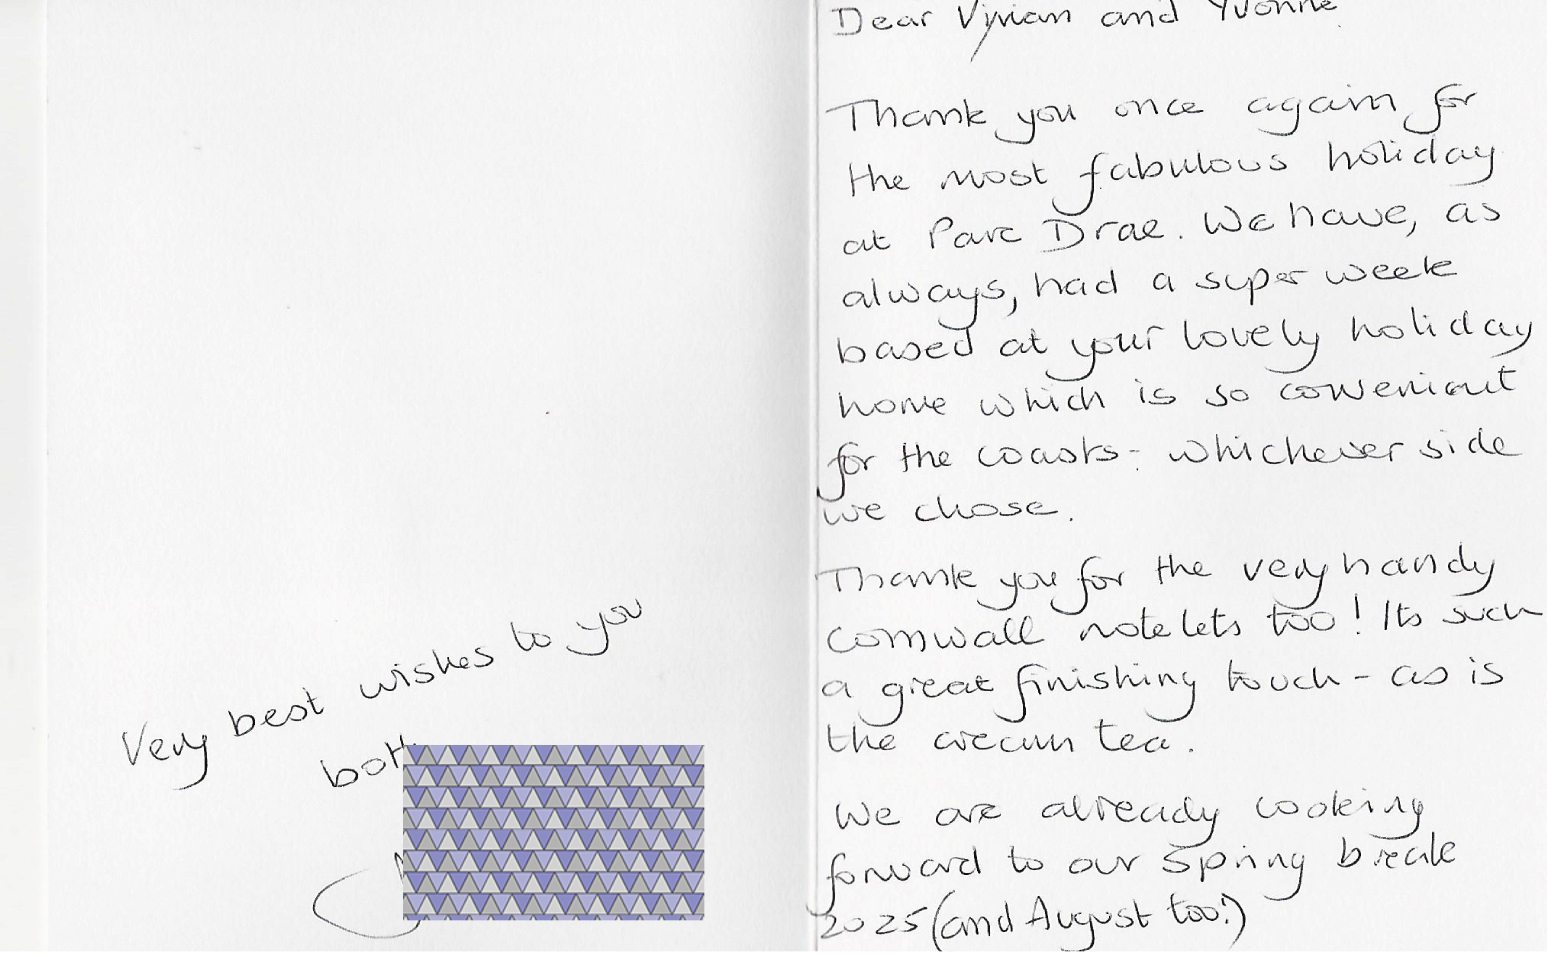 Dear Vyvian and Yvonne
Thank you once again for
the most fabulous holiday
at Parc Drae. We have, as
always, had a super week
based at your lovely holiday
home which is so convenient
for the coasts - whichever side
we chose.
Thank you for the very handy
Cornwall notelets too! Its such
a great finishing touch - as is
the cream tea.
We are already looking
forward to our Spring break
2025 (and August too!)
Very best wishes to you
both